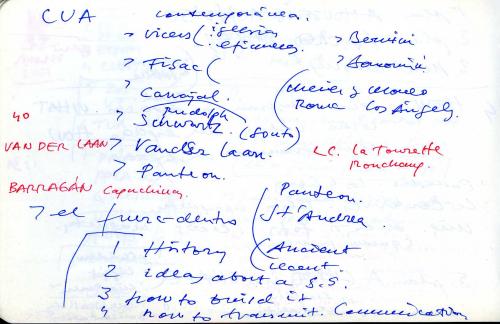 CUA contemporánea.
> Vicens (iglesias
eficiencia. > Bernini
> Fisac ( > Borromini
> Carvajal. Meier y Moneo
Rudolph Roma Los Ángeles
40 > Schwartz. (South)
VAN DER LAAN > Vander Laan. L.C. la Tourette
Ronchamp.
> Panteon.
BARRAGÁN Capuchinas Panteon.
> el fuera-dentro St Andrea
1 History (Ancient
2 ideas about a S.S. recent.
3 how to build it
4 how to transmit. Communication